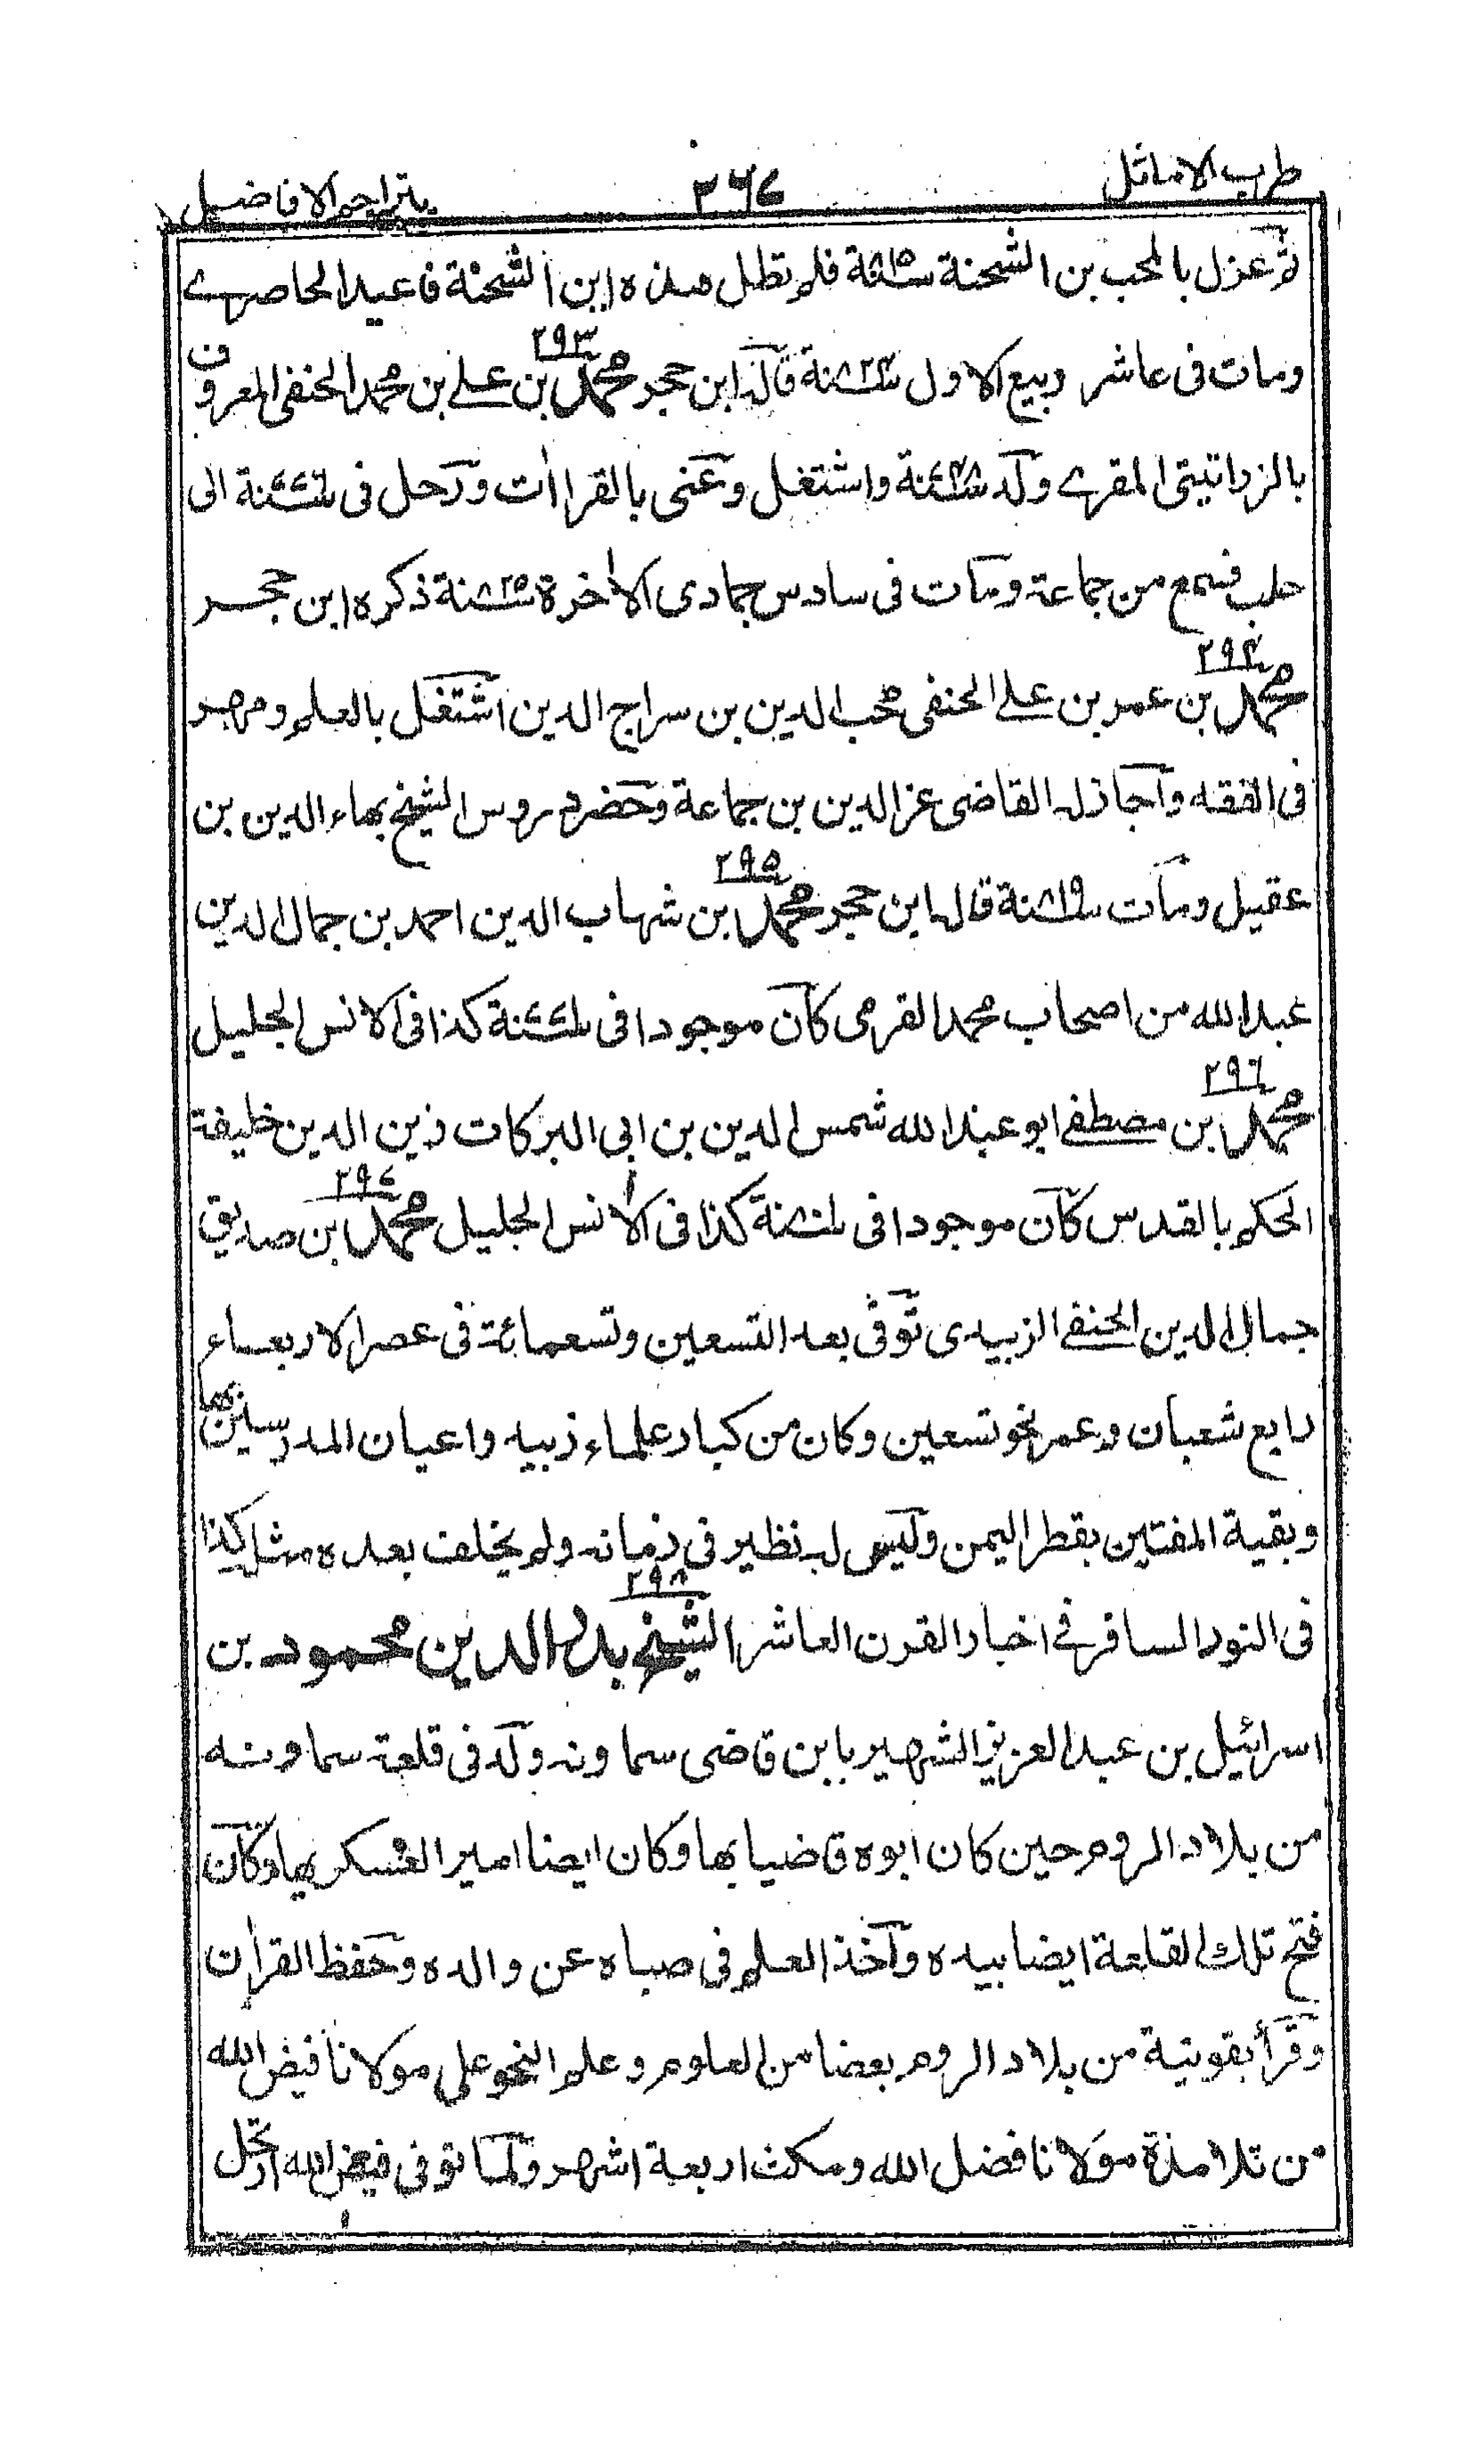 طرب الاماثل ٣٦٧ بتراجم الافاضل
ثم عزل بالمحب بن الشحنة ٨١٥ سنة فلم تطل مدة ابن الشحنة فاعيد الحاصرے
ومات فى عاشر ربيع الاول ٨٢٣ سنة قاله ابن حجر ٢٩٣ محمد بن علے بن محمد الحنفى المعروف
بالزراتيتى المقرے ولد ٧٤٨ سنة واشتغل وعنى بالقراات ورحل فى سنة الى
حلب فسمع من جماعة ومات فى سادس جمادى الاخرة ٨٢٥ سنة ذكره ابن حجر
٢٩٤ محمد بن عمر بن علے الحنفى محب الدين بن سراج الدين اشتغل بالعلم ومهر
فى الفقه واجاز له القاضى عز الدين بن جماعة وحضر دروس الشيخ بهاء الدين بن
عقيل ومات ٨١٩ سنة قاله ابن حجر ٢٩٥ محمد بن شهاب الدين احمد بن جمال الدين
عبد الله من اصحاب محمد القرمى كان موجودا فى سنة كذا فى الانس الجليل
٢٩٦ محمد بن مصطفے ابو عبد الله شمس الدين بن ابى البركات زين الدين خليفة
الحكم بالقدس كان موجودا فى سنة كذا فى الانس الجليل ٢٩٧ محمد بن صديق
جمال الدين الحنفے الزبيدى توفى بعد التسعين وتسعمائة فى عصر الاربعاء
رابع شعبان وعمر نحو تسعين وكان من كبار علماء زبيد واعيان المدرسين بها
وبقية المفتين بقطر اليمن وليس له نظير فى زمانه ولم يخلف بعده مثله كذا
فى النور السافر فے اخبار القرن العاشر ٢٩٨ الشيخ بدر الدين محمود بن
اسرائيل بن عبد العزيز الشهير بابن قاضى سماونه ولد فى قلعة سماونه
من بلاد الروم حين كان ابوه قاضيا بها وكان ايضا امير العسكر بها وكان
فتح تلك القلعة ايضا بيده واخذ العلم فى صباه عن والده وحفظ القران
وقرأ بقونية من بلاد الروم بعضا من العلوم وعلم النحو على مولانا فيض الله
من تلامذة مولانا فضل الله ومكث اربعة اشهر ولما توفى فيض الله ارتحل